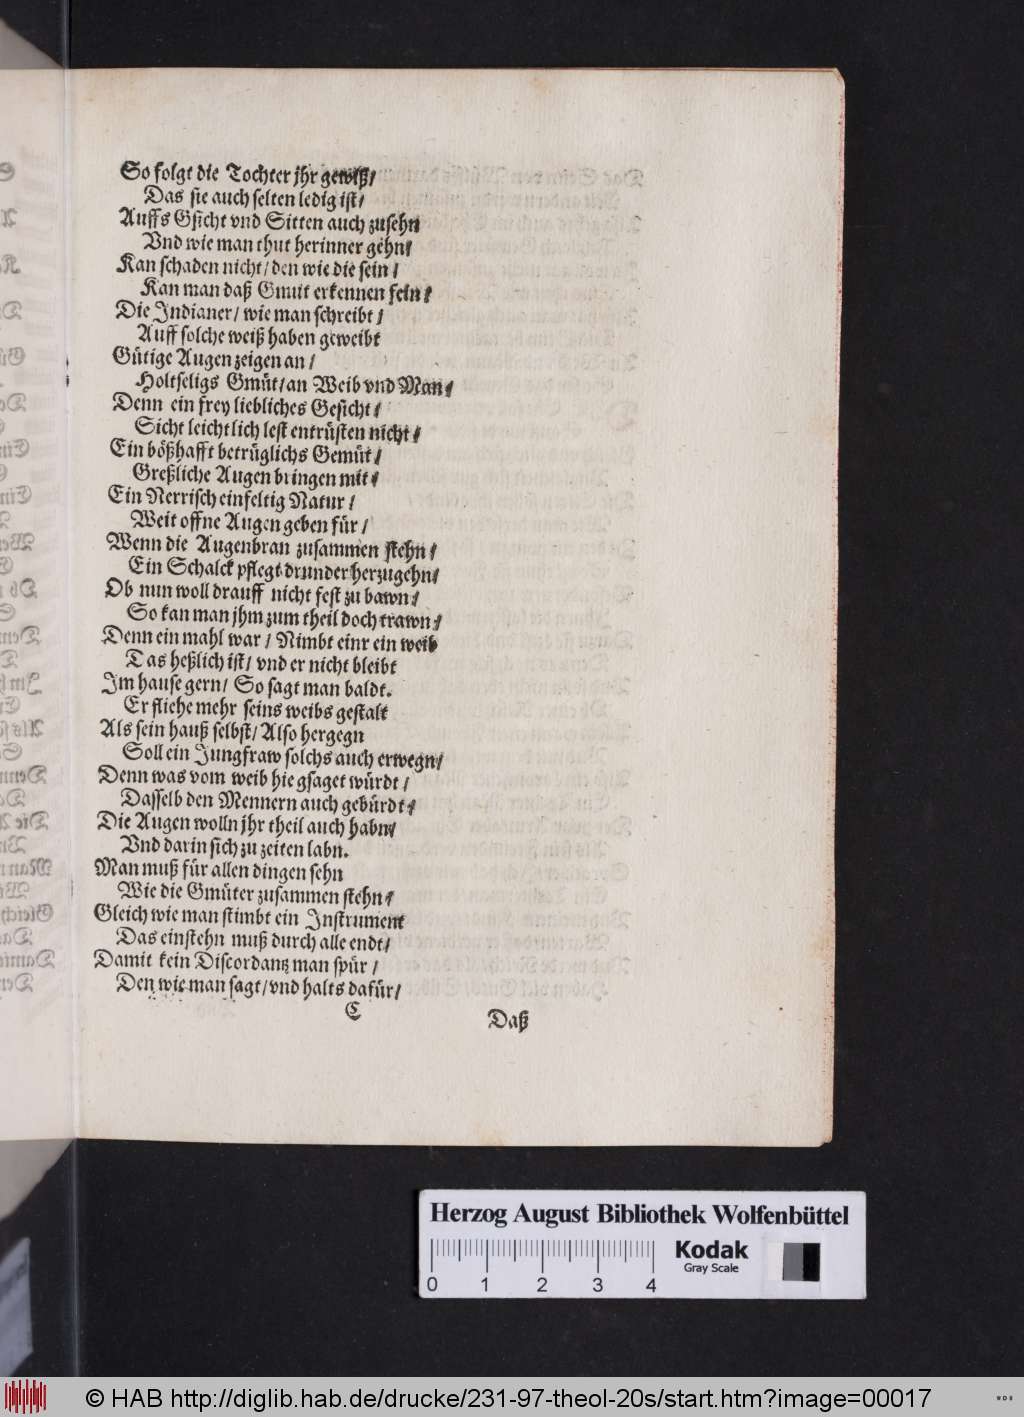 So folgt die Tochter jhr gewiß/
Das sie auch selten ledig ist/
Auffs Gsicht vnd Sitten auch zusehn
Vnd wie man thut herinner gehn/
Kan schaden nicht/ den wie die sein/
Kan man daß Gmüt erkennen fein/
Die Indianer/ wie man schreibt/
Auff solche weiß haben geweibt
Gütige Augen zeigen an/
Holtseligs Gmüt/ an Weib vnd Man/
Denn ein frey liebliches Gesicht/
Sicht leichtlich lest entrüsten nicht/
Ein bößhafft betrüglichs Gemüt/
Greßliche Augen bringen mit/
Ein Nerrisch einfeltig Natur/
Weit offne Augen geben für/
Wenn die Augenbran zusammen stehn/
Ein Schalck pflegt drunder herzugehn/
Ob nun woll drauff nicht fest zu bawn/
So kan man jhm zum theil doch trawn/
Denn ein mahl war/ Nimbt einr ein weib
Das heßlich ist/ vnd er nicht bleibt
Im hause gern/ So sagt man baldt.
Er fliehe mehr seins weibs gestalt
Als sein hauß selbst/ Also hergegn
Soll ein Jungfraw solchs auch erwegn/
Denn was vom weib hie gsaget würdt/
Dasselb den Mennern auch gebürdt/
Die Augen wolln jhr theil auch habn/
Vnd darin sich zu zeiten labn.
Man muß für allen dingen sehn
Wie die Gmüter zusammen stehn/
Gleich wie man stimbt ein Instrument
Das einstehn muß durch alle endt/
Damit kein Discordantz man spür/
Den wie man sagt/ vnd halts dafür/
C
Daß
Herzog August Bibliothek Wolfenbüttel
Kodak
Gray Scale
0 1 2 3 4
© HAB http://diglib.hab.de/drucke/231-97-theol-20s/start.htm?image=00017